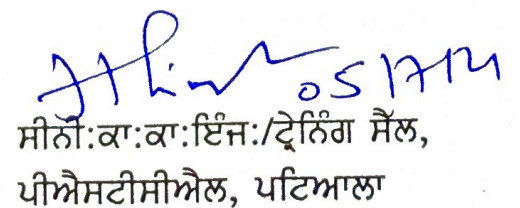 05/7/14
ਸੀਨੀ:ਕਾ:ਕਾ:ਇੰਜ:/ਟ੍ਰੇਨਿੰਗ ਸੈੱਲ,
ਪੀਐਸਟੀਸੀਐਲ, ਪਟਿਆਲਾ